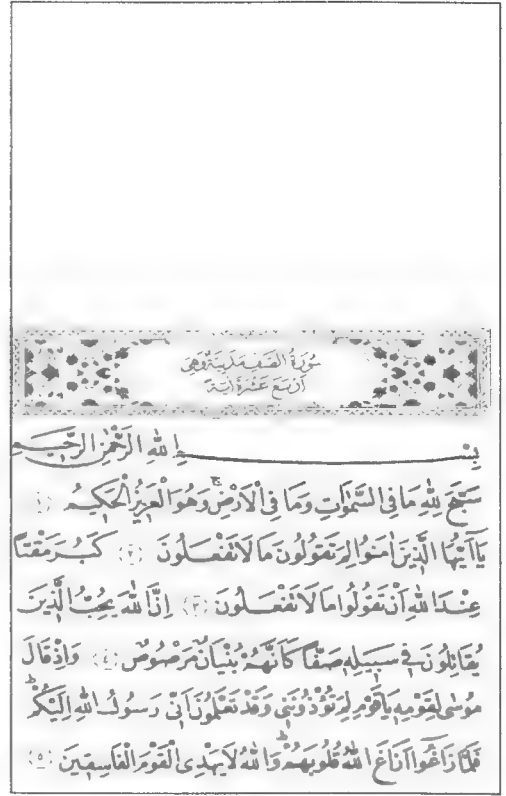 سُورَةُ الصَّفِّ مَدَنِيَّةٌ وَهِيَ
أَرْبَعَ عَشْرَةَ اٰيَةً
بِسْمِ اللهِ الرَّحْمٰنِ الرَّحِيمِ
سَبَّحَ لِلّٰهِ مَا فِى السَّمٰوَاتِ وَمَا فِى الْاَرْضِۚ وَهُوَ الْعَزِيزُ الْحَكِيمُ ﴿١﴾
يَآ اَيُّهَا الَّذِينَ اٰمَنُوا لِمَ تَقُولُونَ مَا لَا تَفْعَلُونَ ﴿٢﴾ كَبُرَ مَقْتًا
عِنْدَ اللهِ اَنْ تَقُولُوا مَا لَا تَفْعَلُونَ ﴿٣﴾ اِنَّ اللهَ يُحِبُّ الَّذِينَ
يُقَاتِلُونَ فِى سَبِيلِهِ صَفًّا كَاَنَّهُمْ بُنْيَانٌ مَرْصُوصٌ ﴿٤﴾ وَاِذْ قَالَ
مُوسٰى لِقَوْمِهِ يَا قَوْمِ لِمَ تُؤْذُونَنِى وَقَدْ تَعْلَمُونَ اَنِّى رَسُولُ اللهِ اِلَيْكُمْۜ
فَلَمَّا زَاغُٓوا اَزَاغَ اللهُ قُلُوبَهُمْۜ وَاللهُ لَا يَهْدِى الْقَوْمَ الْفَاسِقِينَ ﴿٥﴾